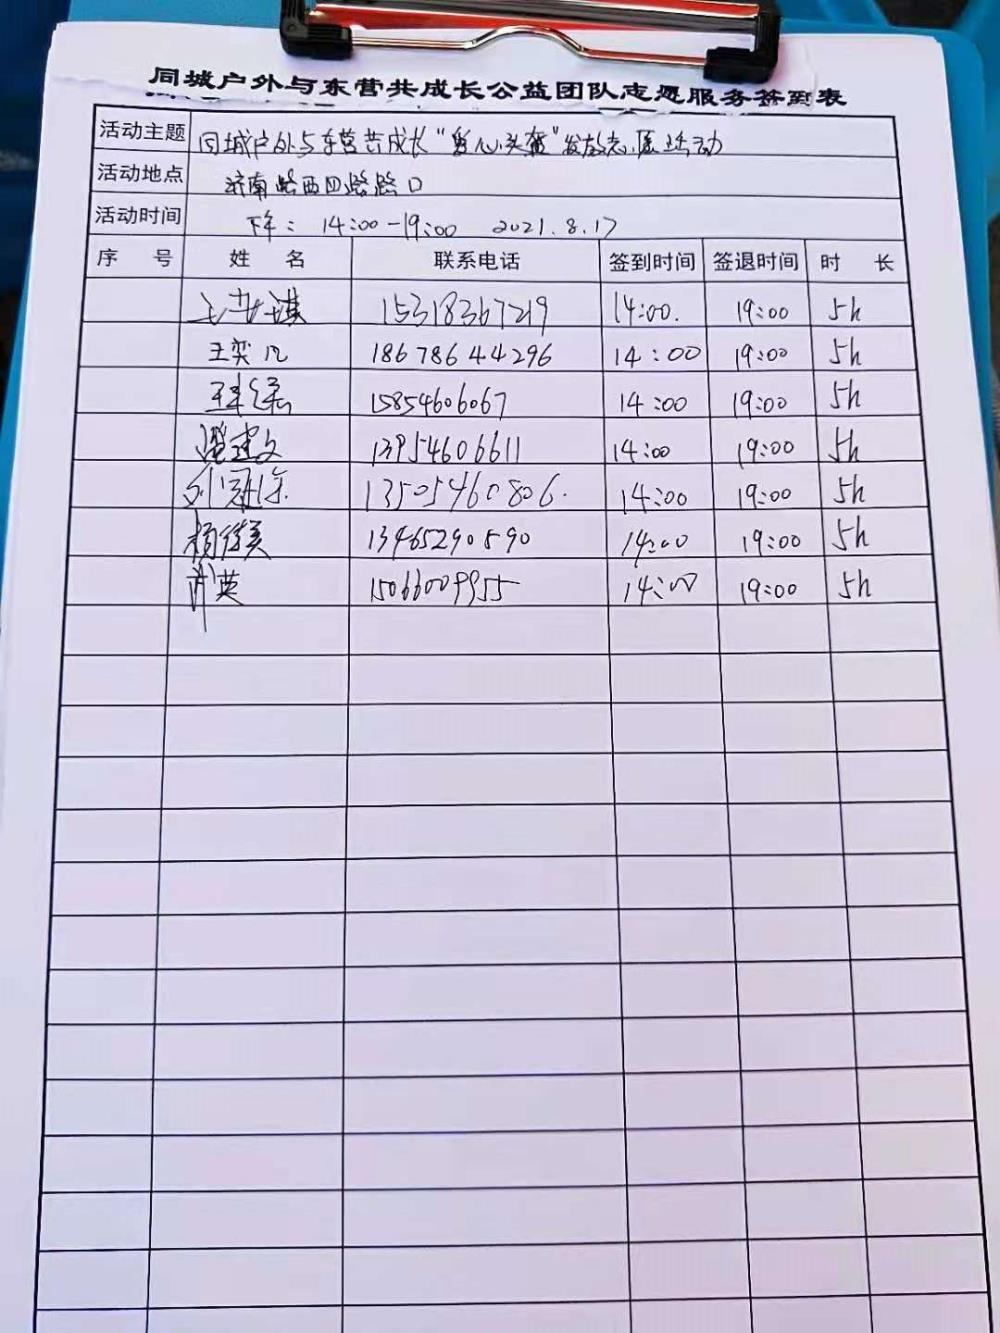 同城户外与东营共成长公益团队志愿服务签到表
活动主题 同城户外与东营共成长“爱心头盔”发放志愿活动
活动地点 济南路西四路路口
活动时间 下午: 14:00-19:00 2021.8.17
序 号 姓 名 联系电话 签到时间 签退时间 时 长
15318367219 14:00. 19:00 5h
王奕凡 18678644296 14:00 19:00 5h
15854606067 14:00 19:00 5h
建文 13954606611 14:00 19:00 5h
刘冠 13505460806. 14:00 19:00 5h
杨 美 13465290590 14:00 19:00 5h
英 15066009955 14:00 19:00 5h